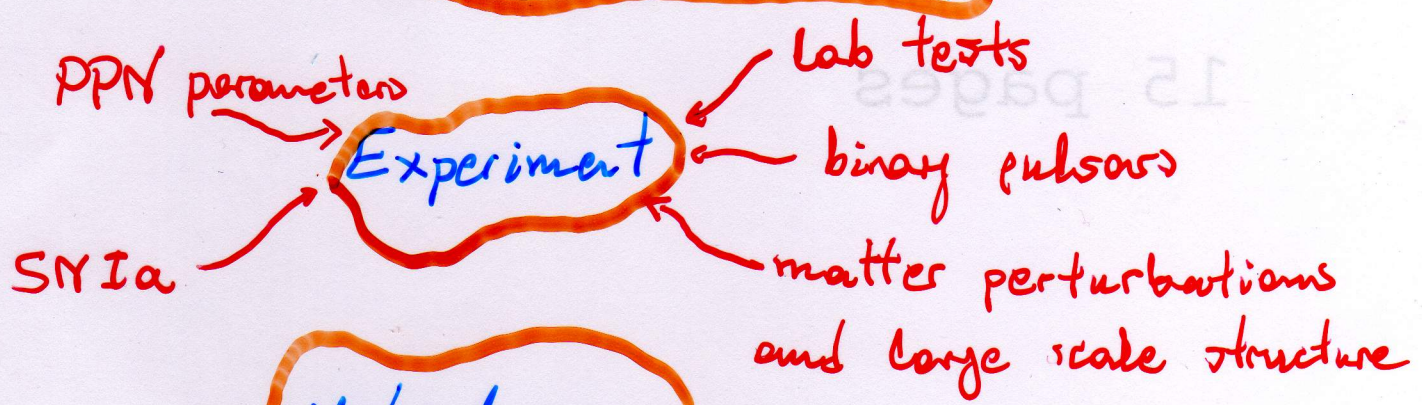 PPN parameters
Lab tests
15 pages
Experiment
binary pulsars
SNIa
matter perturbations
and large scale structure